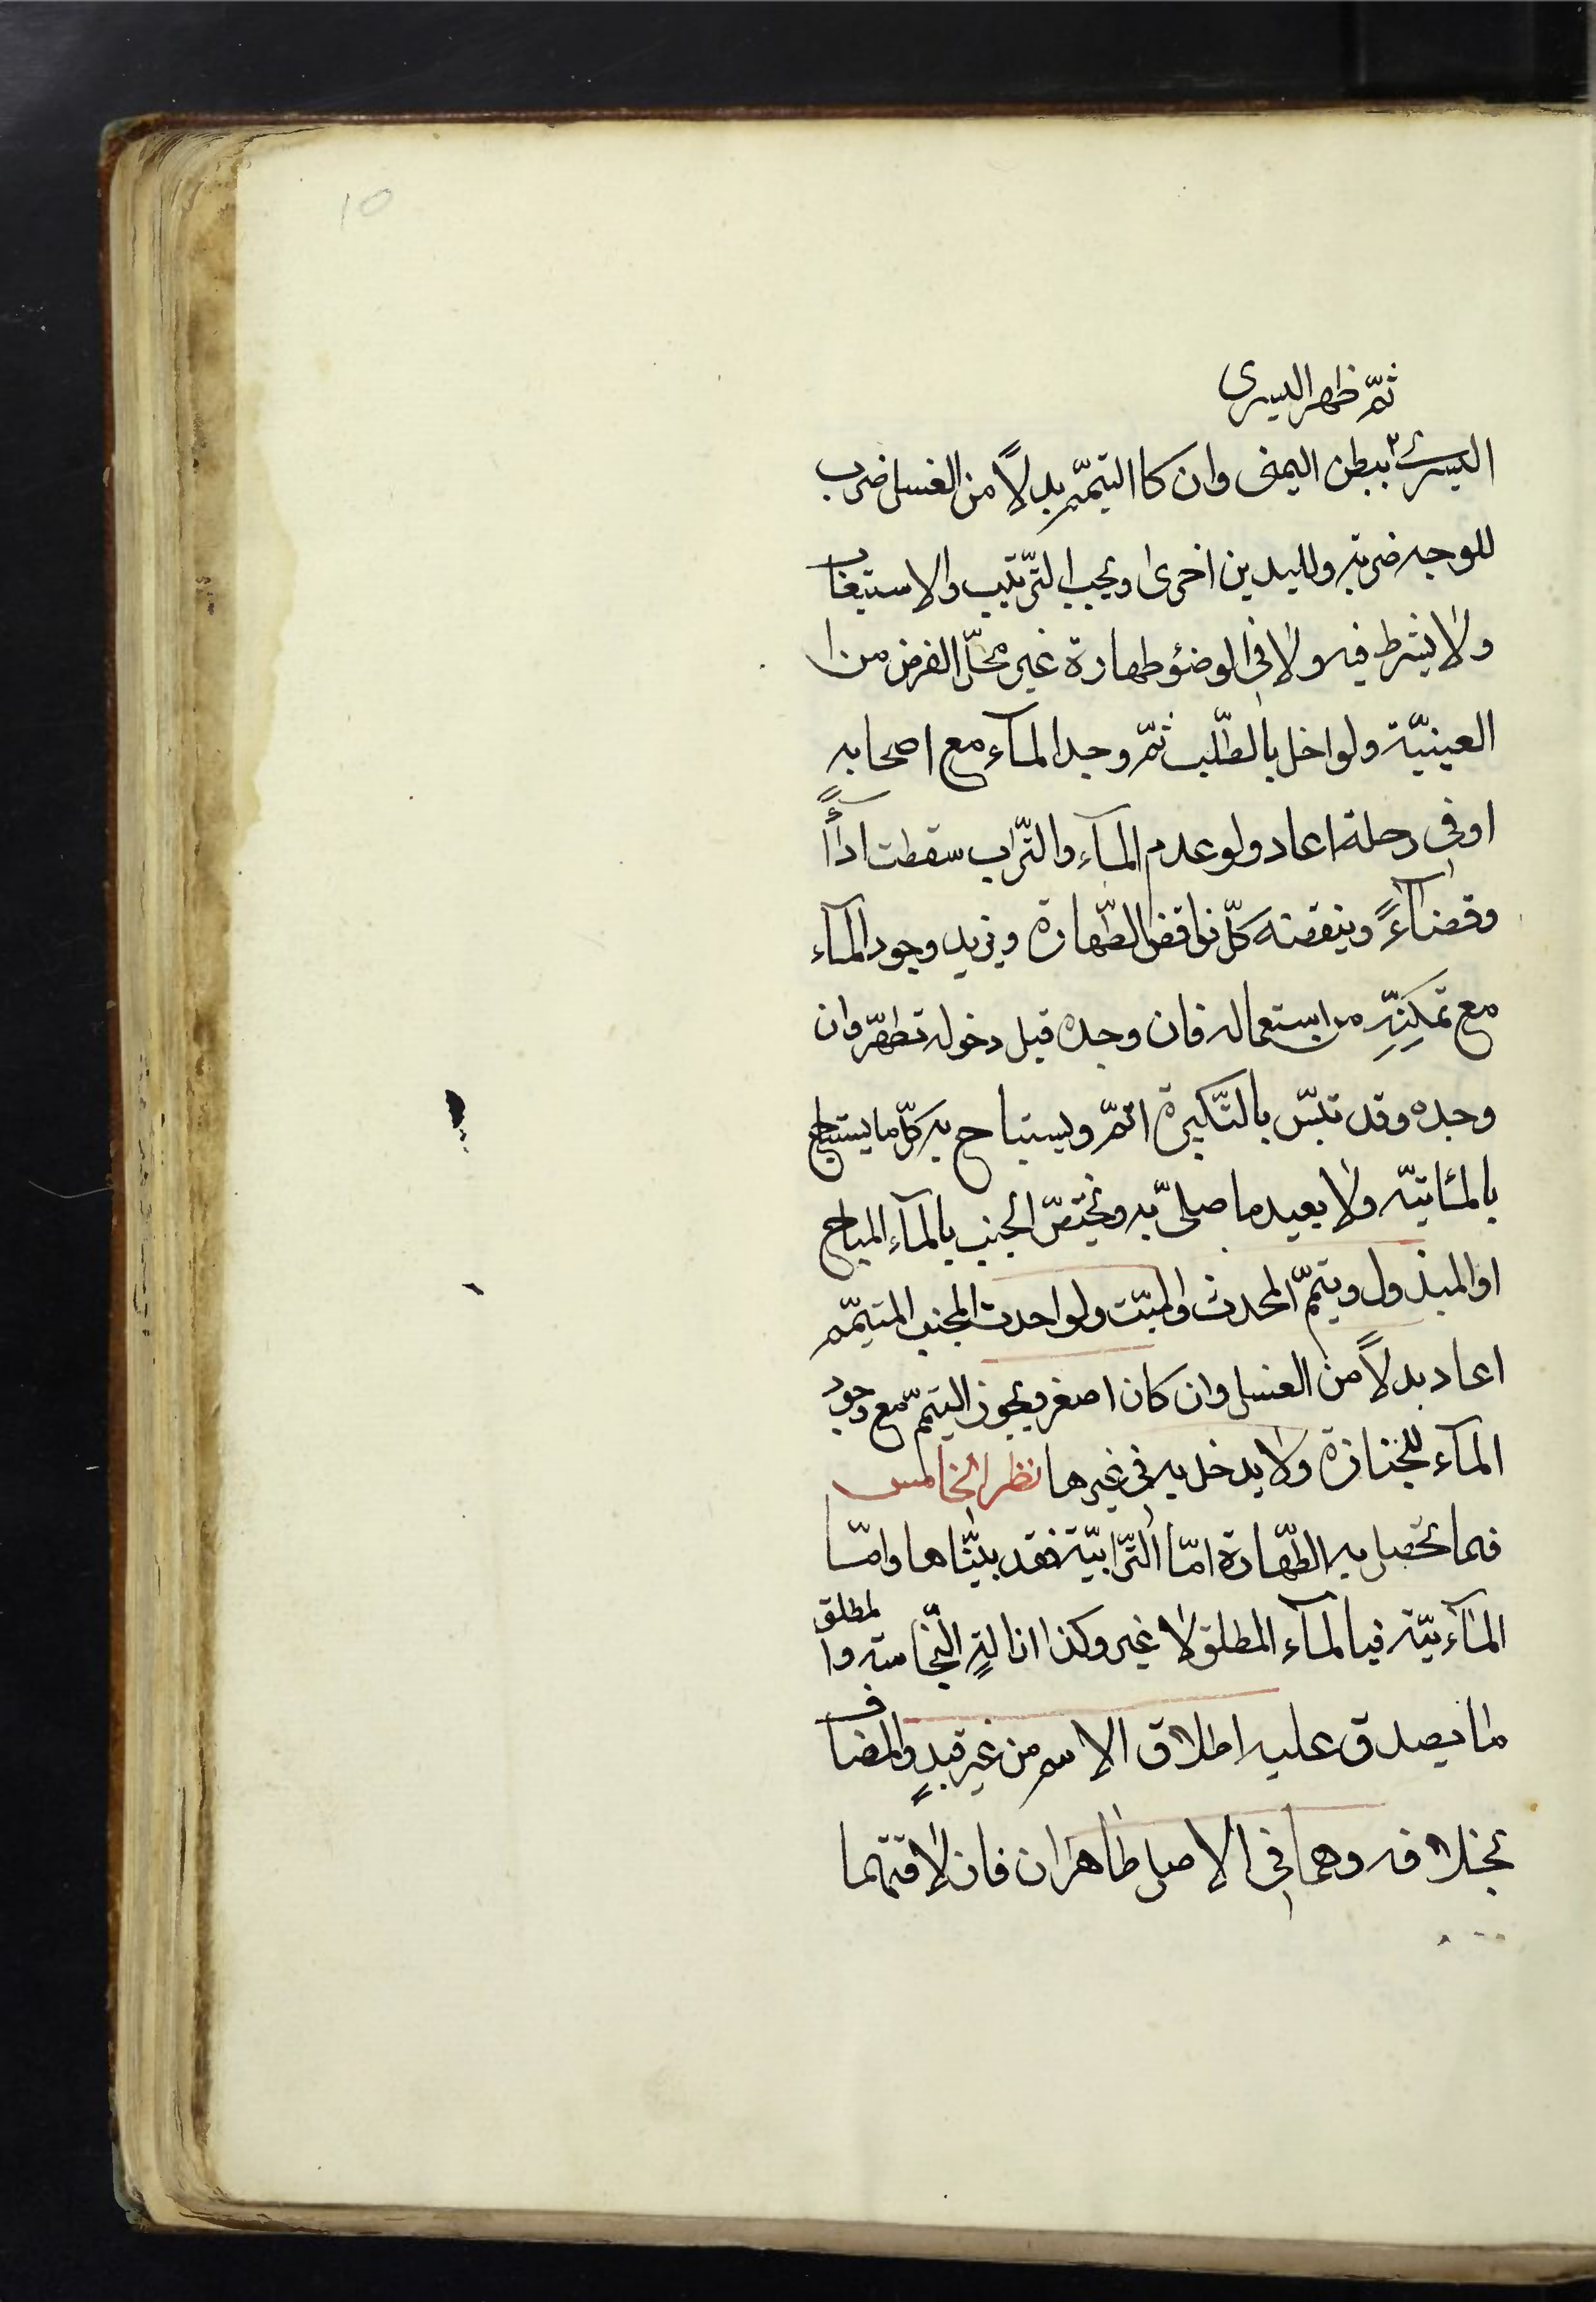 10
ثمّ ظهر اليسرى
اليسرى ٢ ببطن اليمنى وان كا التيمّم بدلاً من الغسل ضرب
للوجه ضربة ولليدين اخرى ويجب الترّتيب والاستيعاب
ولا يشرط فيه ولا في الوضؤ طهارة غير محلّ الفرض من ا
العينيّة ولو اخل بالطّلب ثمّ وجد المآء مع اصحابه
او في رحله اعاد ولو عدم المآء والتّراب سقطت ادآءً
وقضآءً وينقضه كلّ نواقض الطّهارة ويزيد وجود المآء
مع تمكنّه من استعماله فان وجده قبل دخوله تطهّر وان
وجده وقد تلبّس بالتّكبيرة اتمّ ويستباح به كلّ ما يستباح
بالمائيّة ولا يعيد ما صلىّ به ويختصّ الجنب بالمآء المباح
او المبذول ويتيمّم المحدث والميّت ولو احدث المجنب المتيمّم
اعاد بدلاً من الغسل وان كان اصغر ويجوز التيمّم مع وجود
المآء للجنازة ولا يدخل به في غيرها نظر الخامس
فيما تحصل به الطّهارة امّا التّرابيّة فقد بيّنّاها وامّا
المآئيّة فبالمآء المطلق لا غير وكذا ازالة النّجاسة والمطلق
ما يصدق عليه اطلاق الاسم من غير قيدٍ والمضاف
بخلافه وهما في الاصل طاهران فان لاقتهما